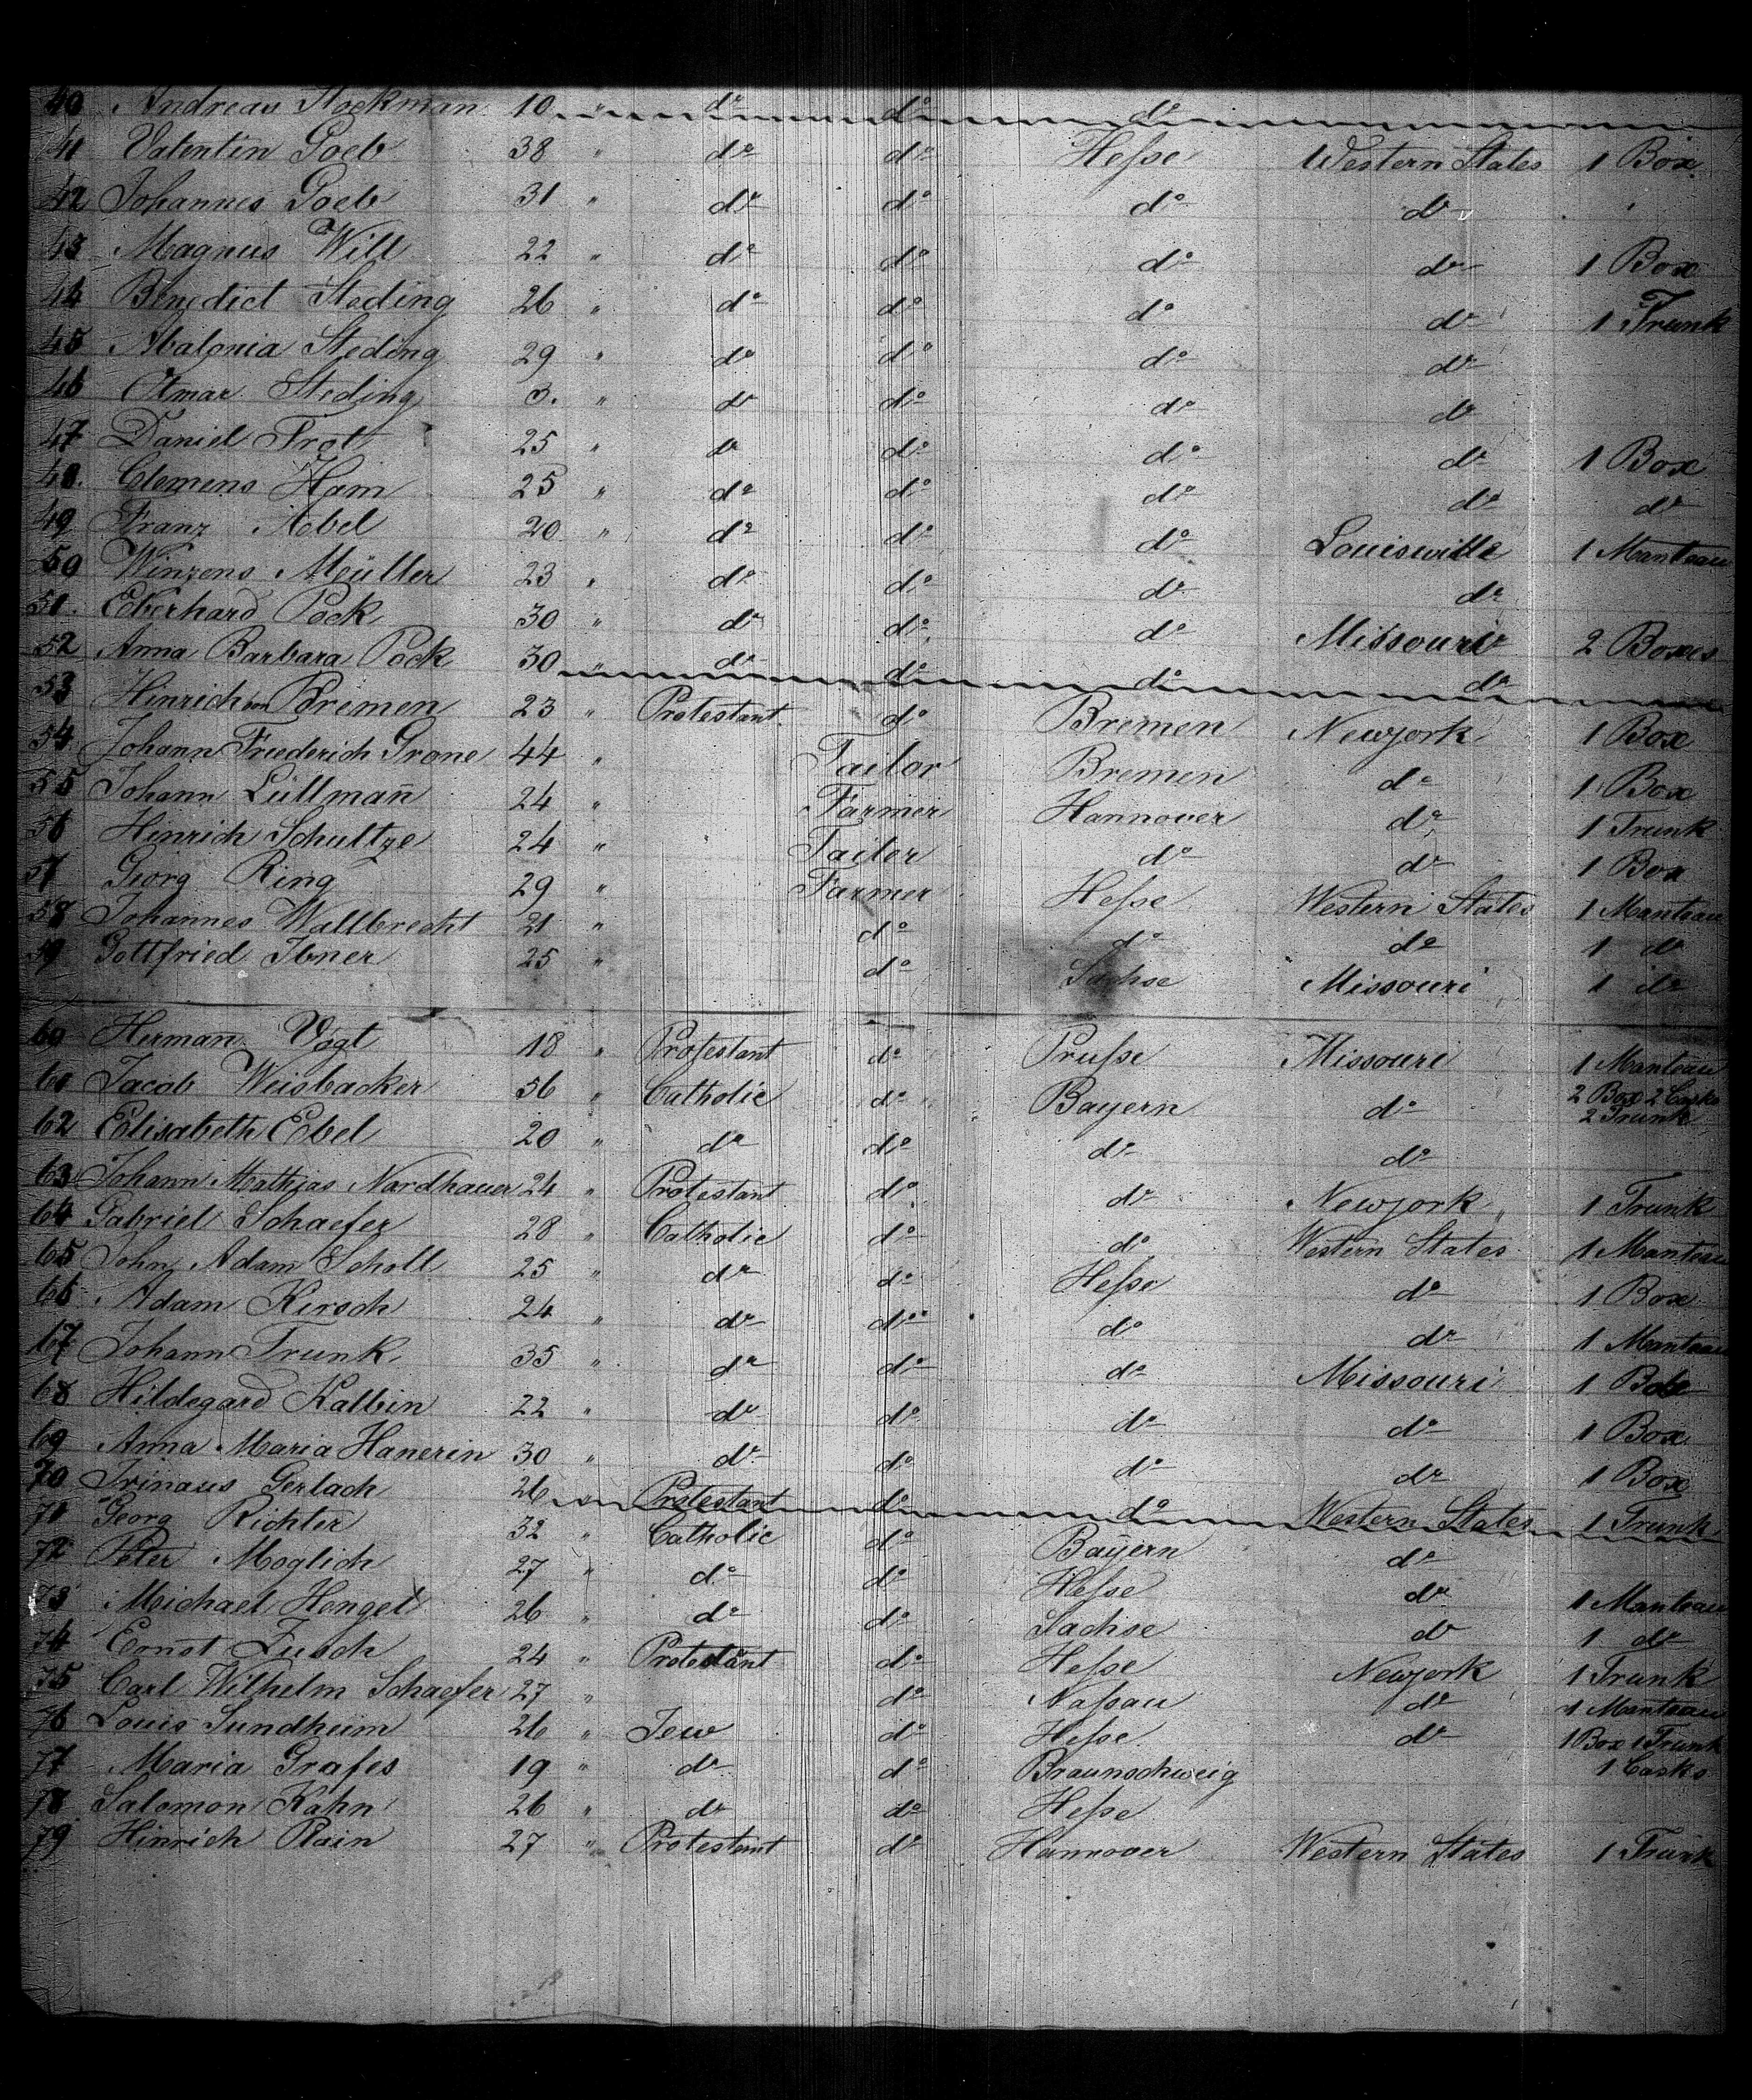 40 Andreas Stockman 10 " do do do
41 Valentin Goeb 38 " do do Hesse Western States 1 Box
42 Johannes Goeb 31 " do do do do
43 Magnus Will 22 " do do do do 1 Box
44 Benedict Steding 26 " do do do do 1 Trunk
45 Abalonia Steding 29 " do do do do
46 Otmar Steding 3. " do do do do
47 Daniel Trot 25 " do do do do 1 Box
48. Clemens Ham 25 " do do do do do
49 Franz Nobel 20 " do do do Louisville 1 Manteau
50 Winzens Müller 23 " do do do do
51. Eberhard Pock 30 " do do do Missouri 2 Boxes
52 Anna Barbara Pock 30 " do do do do
53 Hinrich von Bremen 23 " Protestant do Bremen Newjork 1 Box
54 Johann Friederich Grone 44 " Tailor Bremen do 1 Box
55 Johann Lüllmañ 24 " Farmer Hannover do 1 Trunk
56 Hinrich Schultze 24 " Tailor do do 1 Box
57 Georg Ring 29 " Farmer Hesse Western States 1 Manteau
58 Johannes Wallbrecht 21 " do do do 1 do
59 Gottfried Ibner 25 " do Sachse Missouri 1 do
60 Hermañ Vogt 18 " Protestant do Prusse Missouri 1 Manteau
61 Jacob Weisbacker 56 " Catholic do Bayern do 2 Box 2 Casks
2 Trunk
62 Elisabeth Ebel 20 " do do do do
63 Johann Mathias Nardhauer 24 " Protestant do do Newjork 1 Trunk
64 Gabriel Schaefer 28 " Catholic do do Western States 1 Manteau
65 John Adam Scholl 25 " do do Hesse do 1 Box
66 Adam Kirsch 24 " do do do do 1 Manteau
67 Johann Trunk 35 " do do do Missouri 1 Box
68 Hildegard Kalbin 22 " do do do do 1 Box
69 Anna Maria Hanerin 30 " do do do do 1 Box
70 Irinaus Gerlach 26 " Protestant do do Western States 1 Trunk
71 Georg Richter 32 " Catholic do Bayern do
72 Peter Moglich 27 " do do Hesse do 1 Manteau
73 Michael Hengel 26 " do do Sachse do 1 do
74 Ernst Lusch 24 " Protestant do Hesse Newjork 1 Trunk
75 Carl Wilhelm Schaefer 27 " do Nassau do 1 Manteau
76 Louis Sundheim 26 " Jew do Hesse do 1 Box 1 Trunk
77 Maria Grafes 19 " do do Braunschweig 1 Casks
78 Salomon Kahn 26 " do do Hesse
79 Hinrich Plain 27 " Protestant do Hannover Western States 1 Trunk